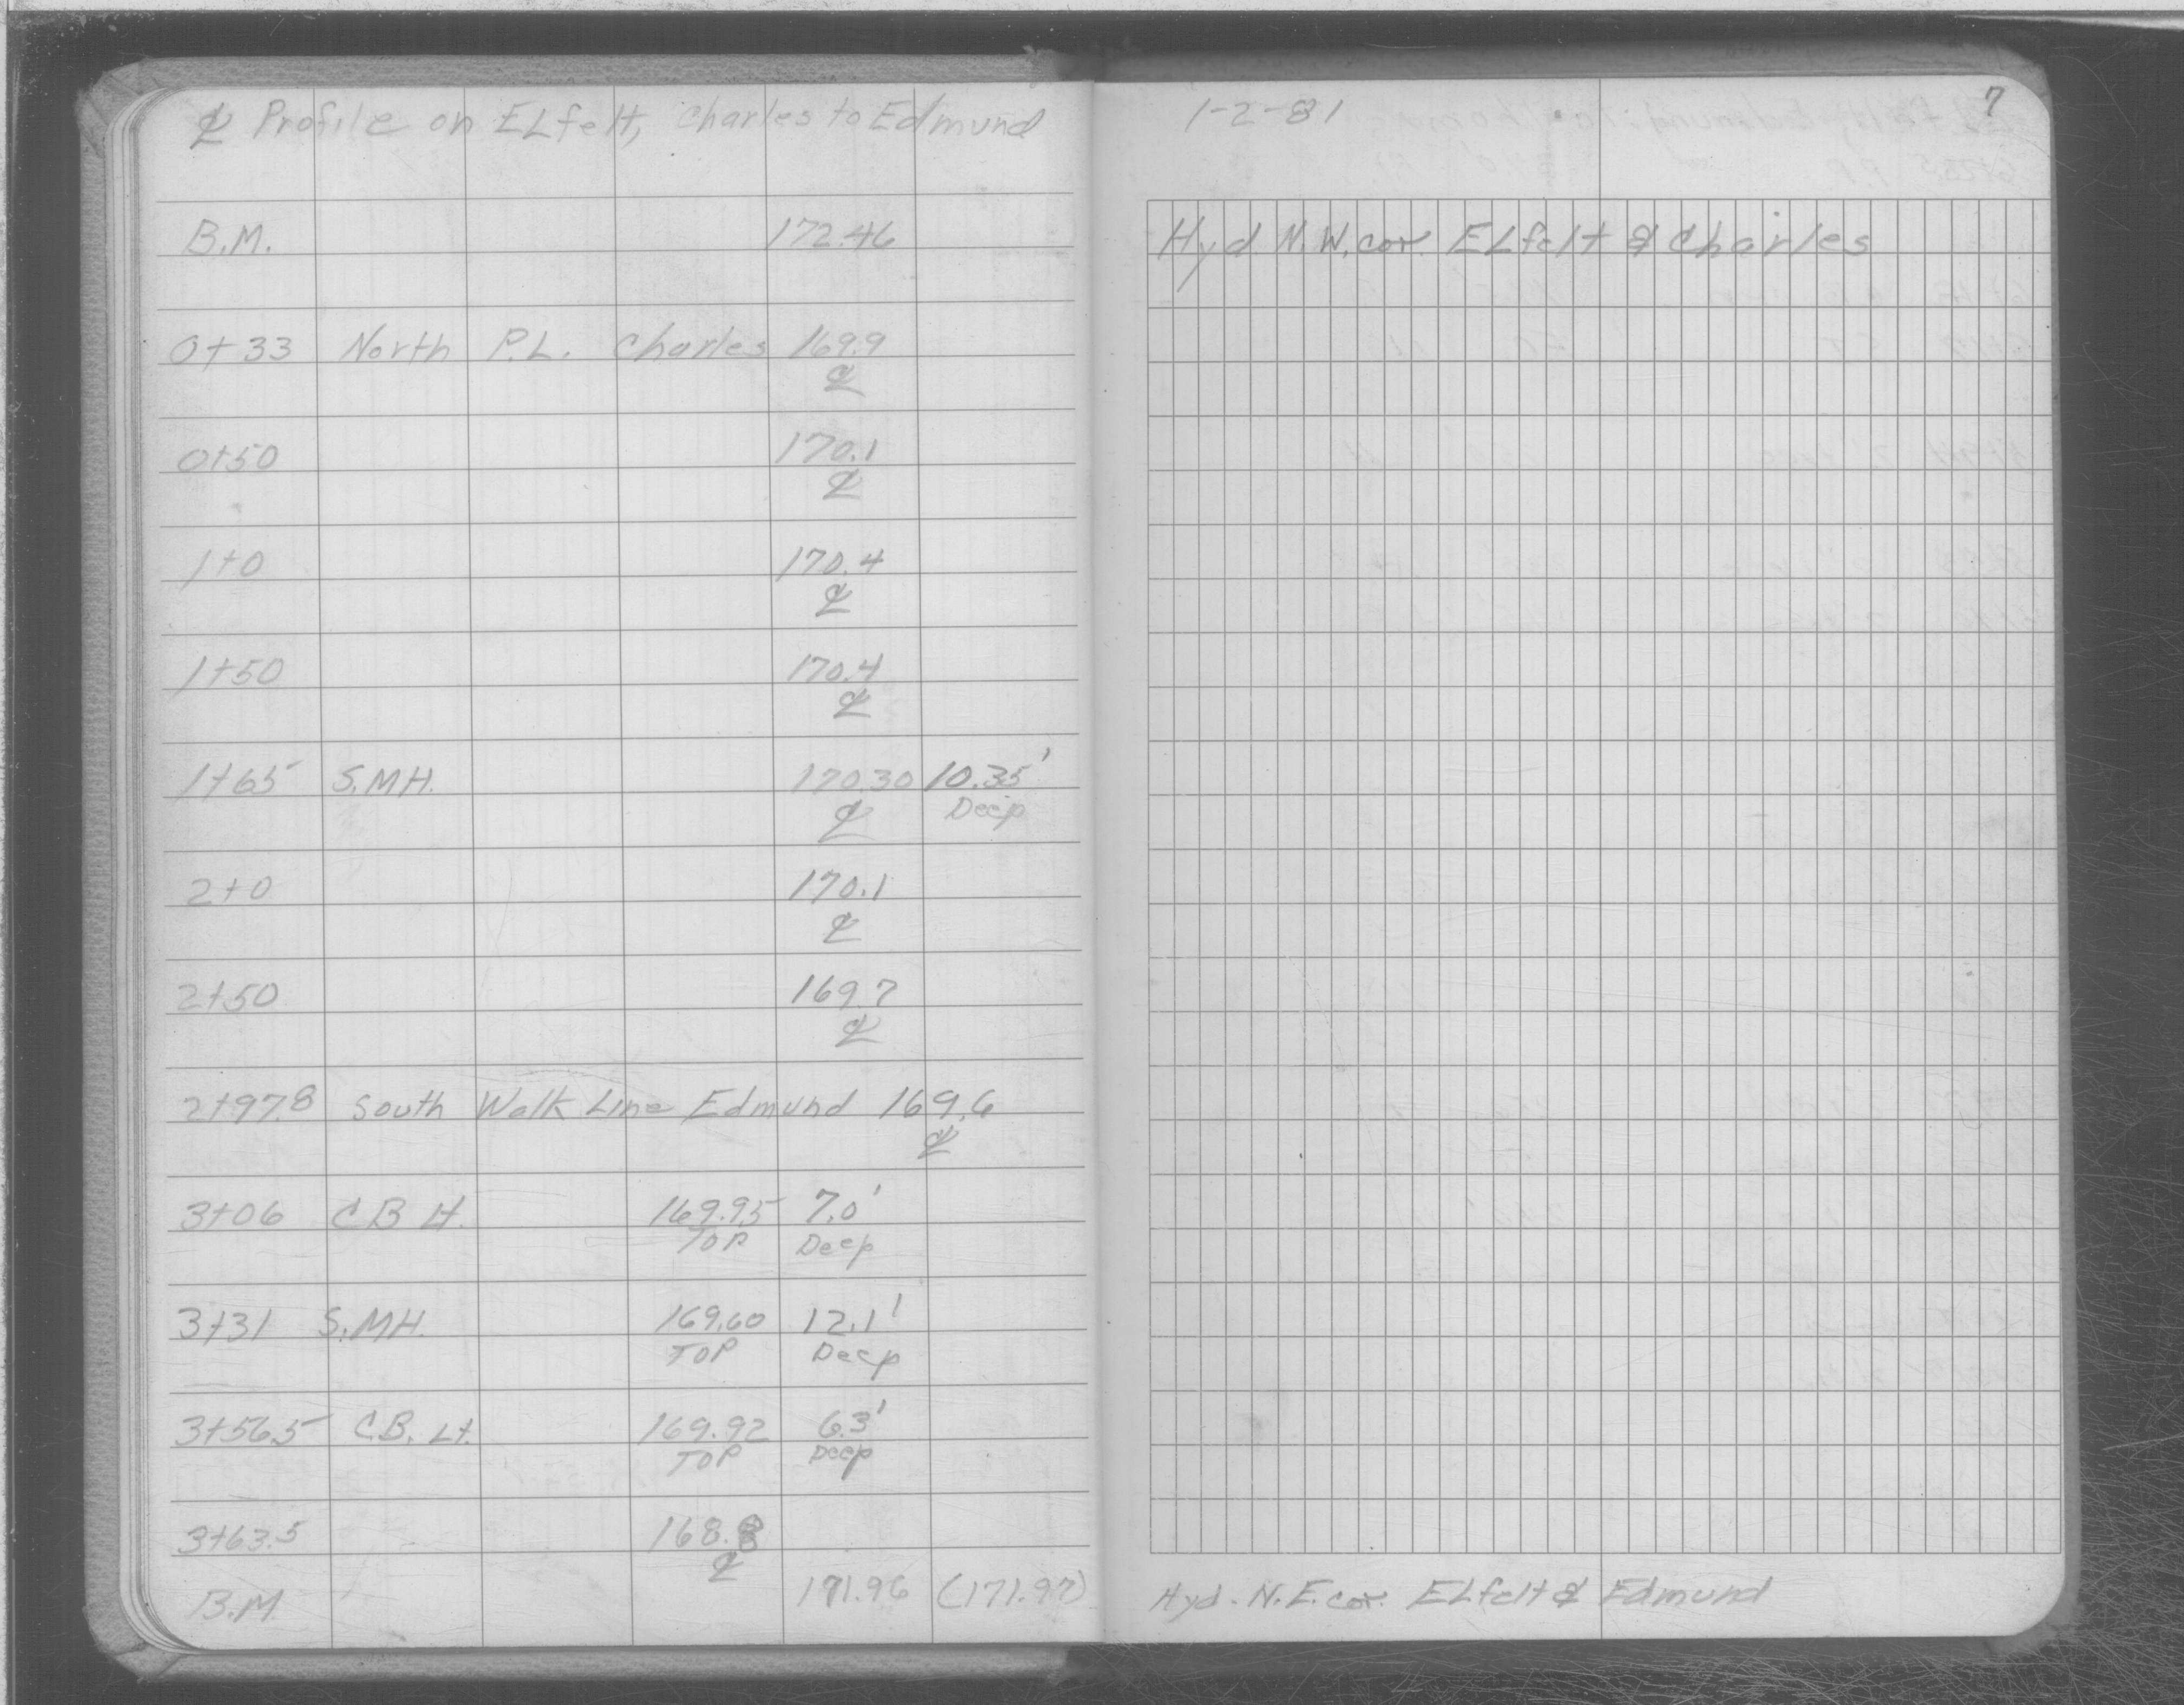 ℄ Profile on ELfelt, Charles to Edmund
B.M. 172.46
0+33 North P.L. Charles 169.9
℄
0+50 170.1
℄
1+0 170.4
℄
1+50 170.4
℄
1+65 S.MH. 170.30 10.35'
℄ Deep
2+0 170.1
℄
2+50 169.7
℄
2+97.8 South Walk Line Edmund 169.6
℄
3+06 CB Lt. 169.95 7.0'
TOP Deep
3+31 S.MH. 169.60 12.1'
TOP Deep
3+56.5 C.B. Lt. 169.92 6.3'
TOP Deep
3+63.5 168.8
℄
B.M. 171.96 (171.97)
1-2-81 7
Hyd. N.W. cor. ELfelt & Charles
Hyd. N.E. cor. ELfelt & Edmund